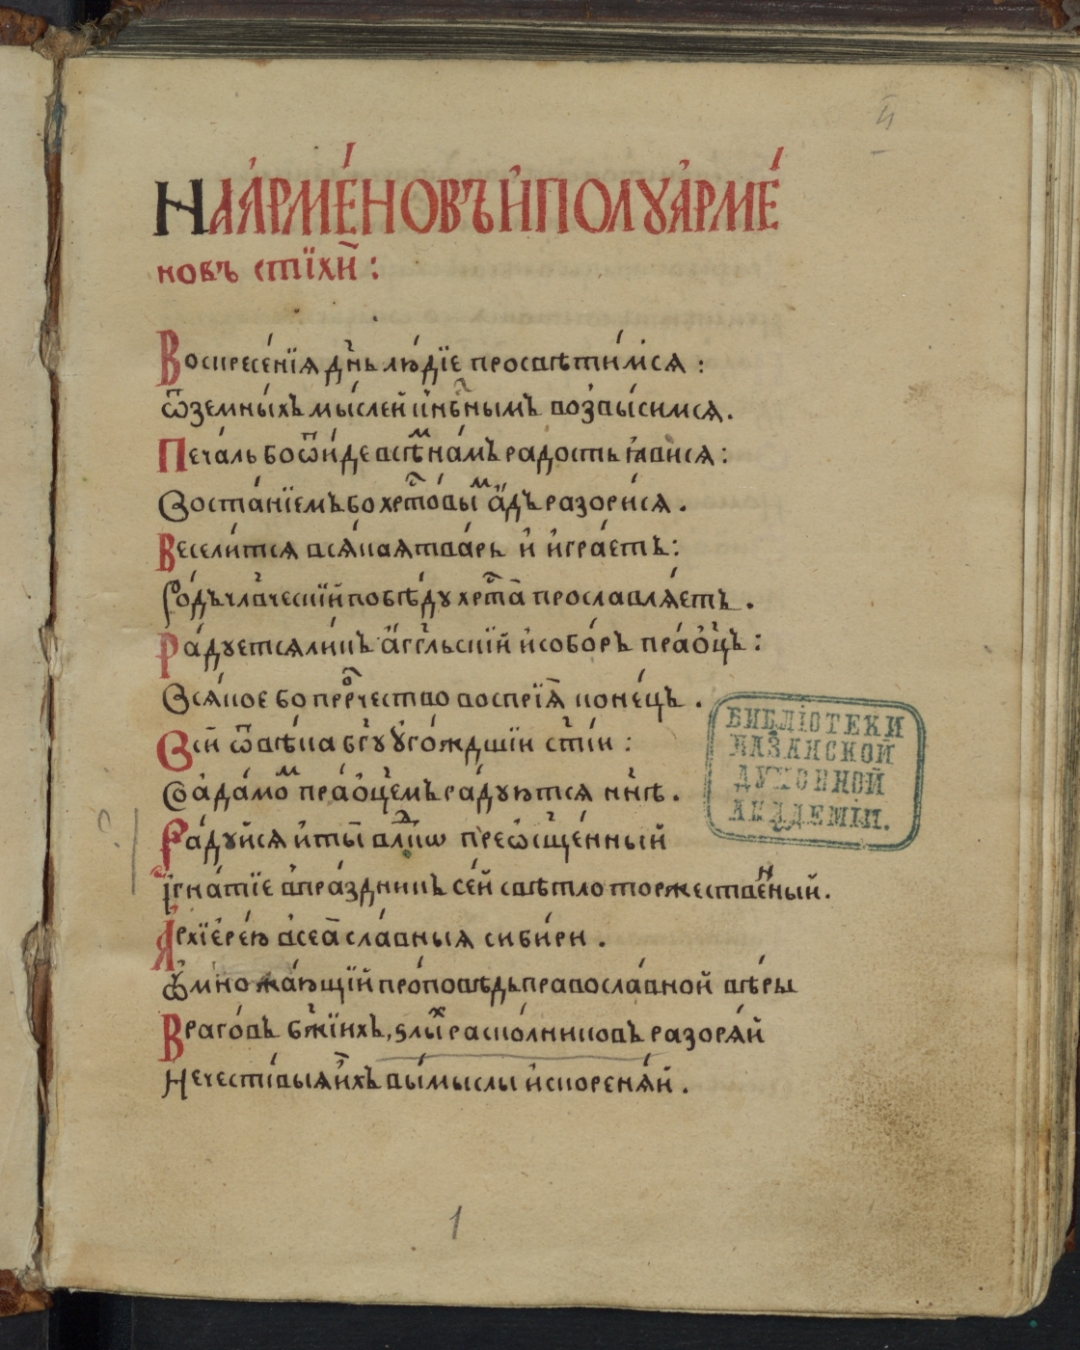 НА А҆РМЕ́НОВЪ И҆ ПОЛУА҆РМЕ́
новъ стїхѝ :
Воскресе́нїя дн҃ь лю́дїе просвѣти́мся :
ѿ земны́хъ мы́слей и҆ нб҃нымъ возвы́симся .
Печа́ль бо ѿи́де всѣм на́мъ радость ꙗ҆ви́ся :
Воста́нїемъ бо хрⷭ҇то́вым а҆́дъ разори́ся .
Весели́тся вся́кая тва́рь и҆ и҆гра́етъ :
Ро́дъ чл҃вческїй побѣ́ду хрⷭ҇та̀ прославля́етъ .
Ра́дуется ли́къ а҆́гг҃льскїй и҆ собо́ръ пра́ѻц҃ъ :
Вся́кое бо прⷪ҇ро́чество воспрїя̀ коне́цъ .
Вси́ ѿ вѣ́ка бг҃у ᲂу҆го́ждшїи ст҃і́и :
Со а҆да́мом пра́ѻц҃емъ ра́дуются нн҃ѣ .
Ра́дуйся и҆ ты̀ влⷣко преѡсщ҃е́нный
І҆гна́тїе в пра́здникъ се́й свѣ́тло торже́ственный .
А҆рхїере́ю всея̀ сла́вныя сиби́ри .
Оу҆множа́ющїй про́повѣдь правосла́вной вѣ́ры
Враго́въ бж҃їихъ, ѕлы́х раско́лниковъ разоря́й
Нечести́выя и҆́хъ вы́мыслы и҆скореня́й .
БИБЛІОТЕКИ
КАЗАНСКОЙ
ДУХОВНОЙ
АКАДЕМІИ.
1